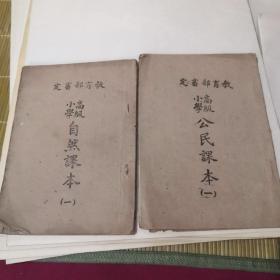 定審部育教
高級
小學
自然課本
(一)
定審部育教
高級
小學
公民課本
(一)